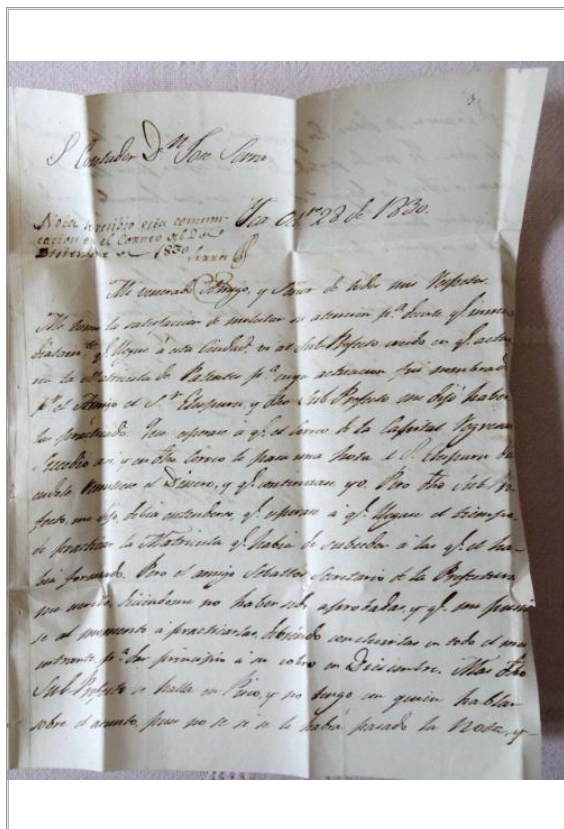 3
S. Contador Dn. José Serra
Yca Oct.re 28 de 1830.
Nota recibio esta comuni-
cacion en el Correo del 2 de
Diciembre de 1830 Serra
Mi venerado Amigo, y Señor de todo mi respeto.
Me tomo la satisfaccion de molestar su atencion pa. decirle q.e inme-
diatam.te q.e llegue á esta Ciudad, vi al Sub Prefecto
la Matricula de Patentes pa. cuya actuacion fui nombrado
pr. el Amigo el Sr. y dho Sub Prefecto me dijo haber-
la practicado. Que esperase á q.e el Correo de la Capital regresase
Sucedió asi, y en dho Correo le pasa una nota el S.
el Dinero, y q.e continuase yo. Pero dho Sub Pre-
fecto, me dijo, debia entenderse, q.e esperase á q.e llegase el tiempo
de practicar la Matricula q.e habia de suceder á las q.e el ha-
bia formado. Pero el amigo Seballos Secretario de la Prefectura
me escrive, diciendome no haber sido aprobadas, y q.e me pusie-
se al momento á practicarlas, debiendo concluirlas en todo el mes
entrante, pa. dar principio á su cobro en Diciembre. Mas dho
Sub Prefecto se halla en Pisco, y no tengo con quien hablar
sobre el asunto, pues no se si se le habrá pasado la Nota, y